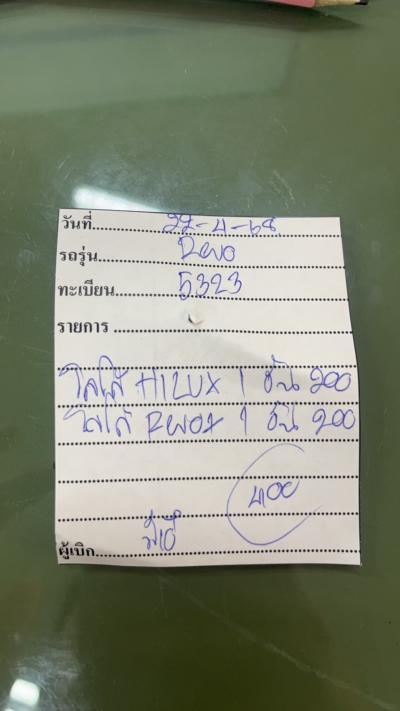 วันที่ 22-4-68
รถรุ่น Revo
ทะเบียน 5323
รายการ
โลโก้ HILUX 1 ชิ้น 200
โลโก้ REVO 1 ชิ้น 200
400
ผู้เบิก